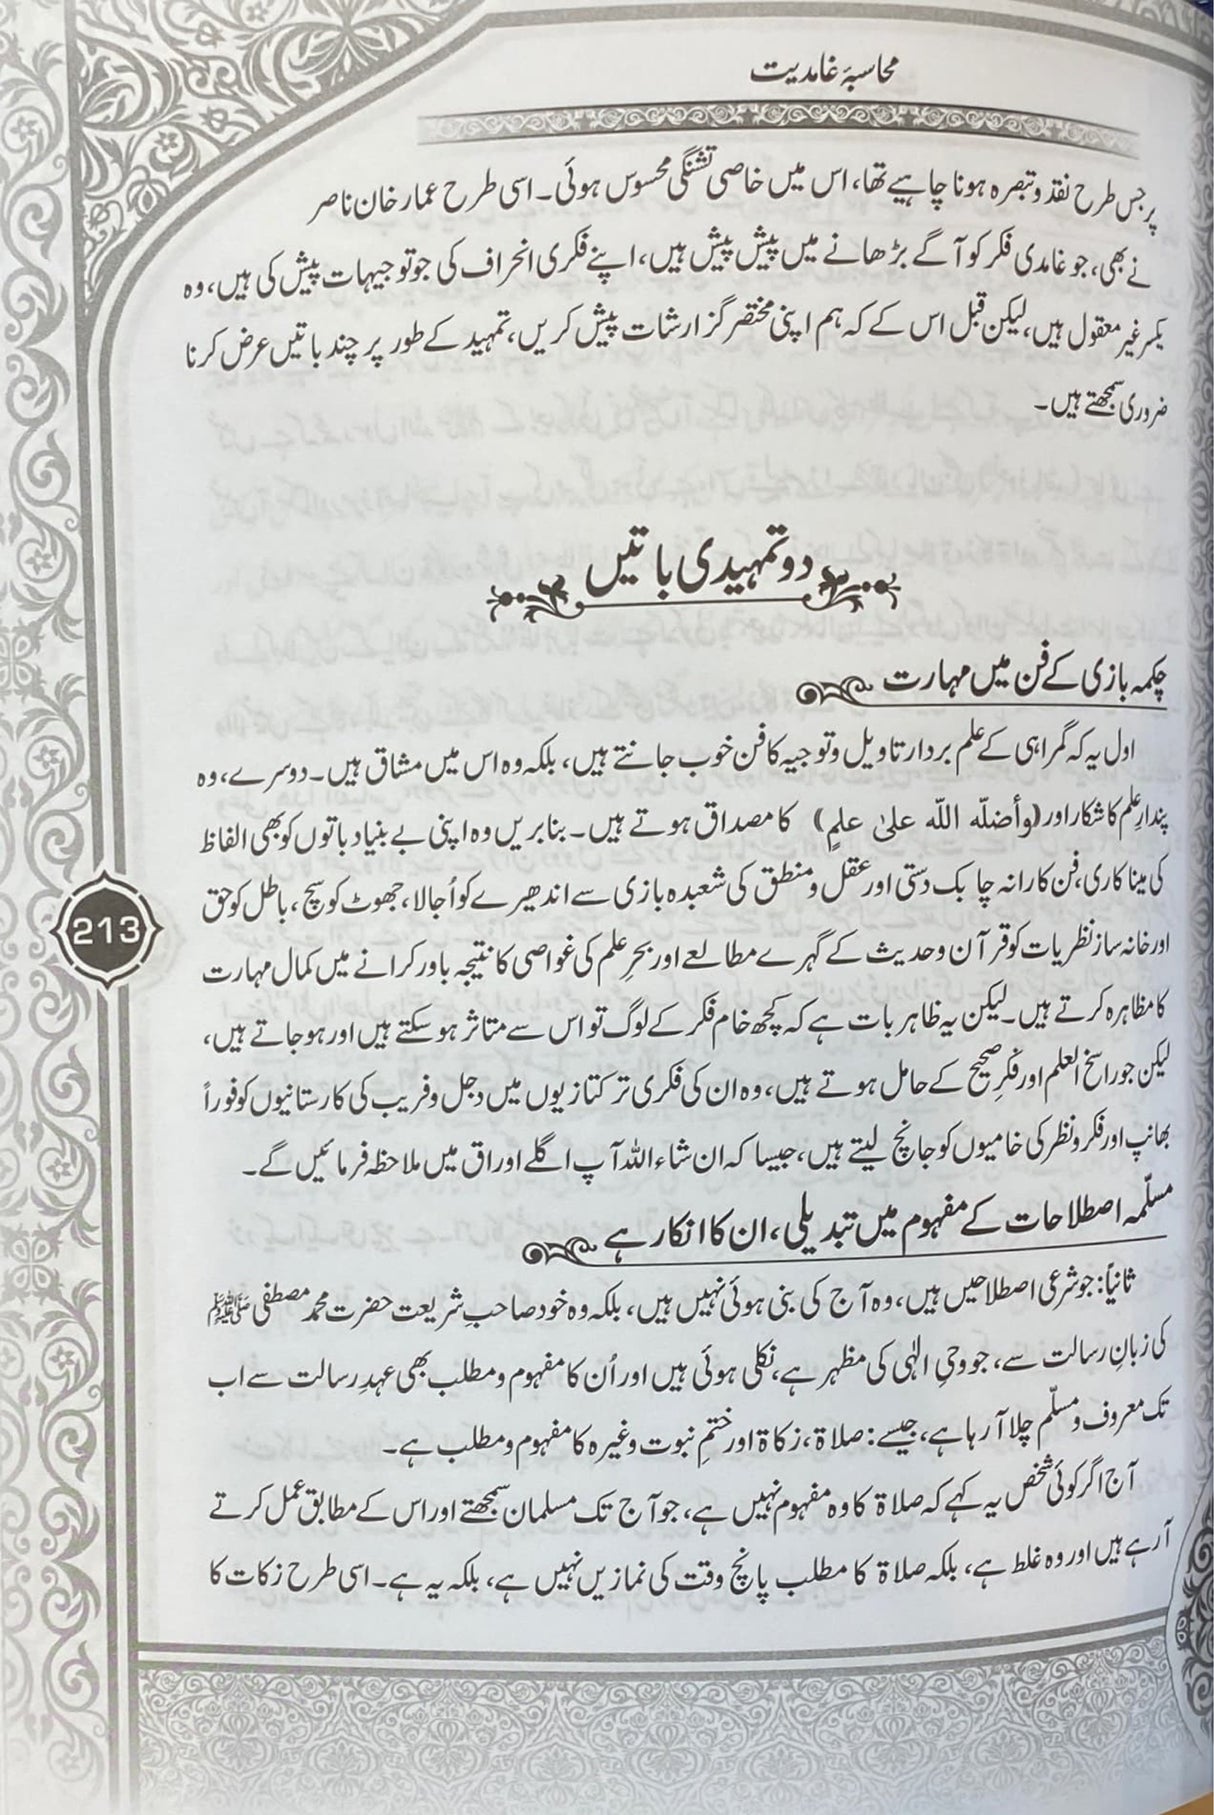 محاسبۂ غامدیت
پر جس طرح نقد و تبصرہ ہونا چاہیے تھا، اس میں خاصی تشنگی محسوس ہوئی۔ اسی طرح عمار خان ناصر
نے بھی، جو غامدی فکر کو آگے بڑھانے میں پیش پیش ہیں، اپنے فکری انحراف کی جو توجیہات پیش کی ہیں، وہ
یکسر غیر معقول ہیں، لیکن قبل اس کے کہ ہم اپنی مختصر گزارشات پیش کریں، تمہید کے طور پر چند باتیں عرض کرنا
ضروری سمجھتے ہیں۔
دو تمہیدی باتیں
چکمہ بازی کے فن میں مہارت
اول یہ کہ گمراہی کے علم بردار تاویل و توجیہ کا فن خوب جانتے ہیں، بلکہ وہ اس میں مشاق ہیں۔ دوسرے، وہ
پندارِ علم کا شکار اور (وأضلّه اللّه علیٰ علمٍ) کا مصداق ہوتے ہیں۔ بنابریں وہ اپنی بے بنیاد باتوں کو بھی الفاظ
کی مینا کاری، فن کارانہ چابک دستی اور عقل و منطق کی شعبدہ بازی سے اندھیرے کو اُجالا، جھوٹ کو سچ، باطل کو حق
اور خانہ ساز نظریات کو قرآن و حدیث کے گہرے مطالعے اور بحرِ علم کی غواصی کا نتیجہ باور کرانے میں کمال مہارت
کا مظاہرہ کرتے ہیں۔ لیکن یہ ظاہر بات ہے کہ کچھ خام فکر کے لوگ تو اس سے متاثر ہو سکتے ہیں اور ہو جاتے ہیں،
لیکن جو راسخ العلم اور فکرِ صحیح کے حامل ہوتے ہیں، وہ ان کی فکری ترکتازیوں میں دجل و فریب کی کارستانیوں کو فوراً
بھانپ اور فکر و نظر کی خامیوں کو جانچ لیتے ہیں، جیسا کہ ان شاء اللہ آپ اگلے اوراق میں ملاحظہ فرمائیں گے۔
213
مسلّمہ اصطلاحات کے مفہوم میں تبدیلی، ان کا انکار ہے
ثانیاً: جو شرعی اصطلاحیں ہیں، وہ آج کی بنی ہوئی نہیں ہیں، بلکہ وہ خود صاحبِ شریعت حضرت محمد مصطفی ﷺ
کی زبانِ رسالت سے، جو وحیِ الٰہی کی مظہر ہے، نکلی ہوئی ہیں اور اُن کا مفہوم و مطلب بھی عہدِ رسالت سے اب
تک معروف و مسلّم چلا آ رہا ہے، جیسے: صلاۃ، زکاۃ اور ختمِ نبوت وغیرہ کا مفہوم و مطلب ہے۔
آج اگر کوئی شخص یہ کہے کہ صلاۃ کا وہ مفہوم نہیں ہے، جو آج تک مسلمان سمجھتے اور اس کے مطابق عمل کرتے
آ رہے ہیں اور وہ غلط ہے، بلکہ صلاۃ کا مطلب پانچ وقت کی نمازیں نہیں ہے، بلکہ یہ ہے۔ اسی طرح زکات کا